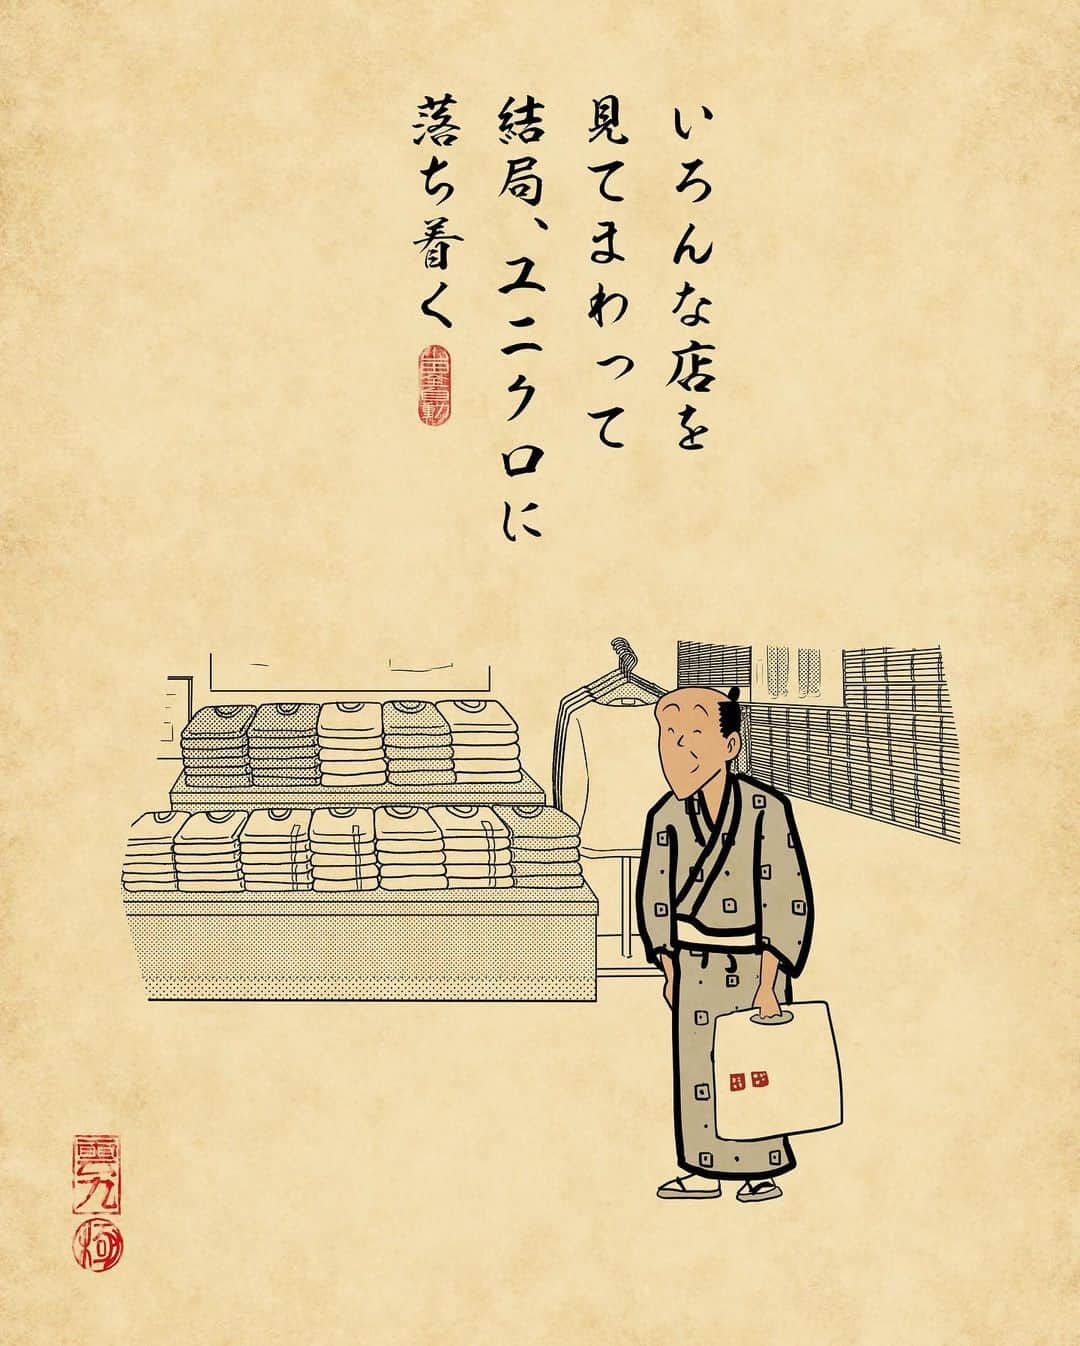 いろんな店を
見てまわって
結局、ユニクロに
落ち着く